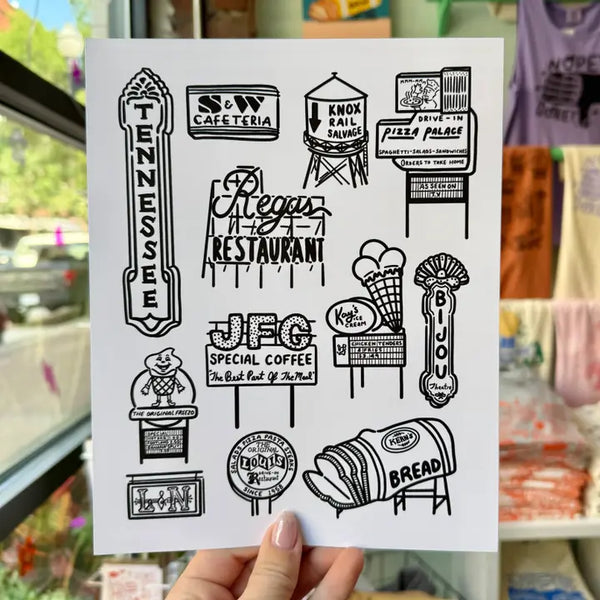 TENNESSEE
S&W
CAFETERIA
KNOX
RAIL
SALVAGE
DRIVE-IN
PIZZA PALACE
SPAGHETTI-SALADS-SANDWICHES
ORDERS TO TAKE HOME
AS SEEN ON
TV
Regas
RESTAURANT
Kay's
ICE
CREAM
CHICKEN TENDERS
BIJOU
Theatre
JFG
SPECIAL COFFEE
"The Best Part Of The Meal"
THE ORIGINAL FREEZO
SALADS PIZZA PASTA STEAKS
THE
ORIGINAL
LOUIS'
DRIVE-IN
Restaurant
SINCE 1958
KERN'S
BREAD
L&N